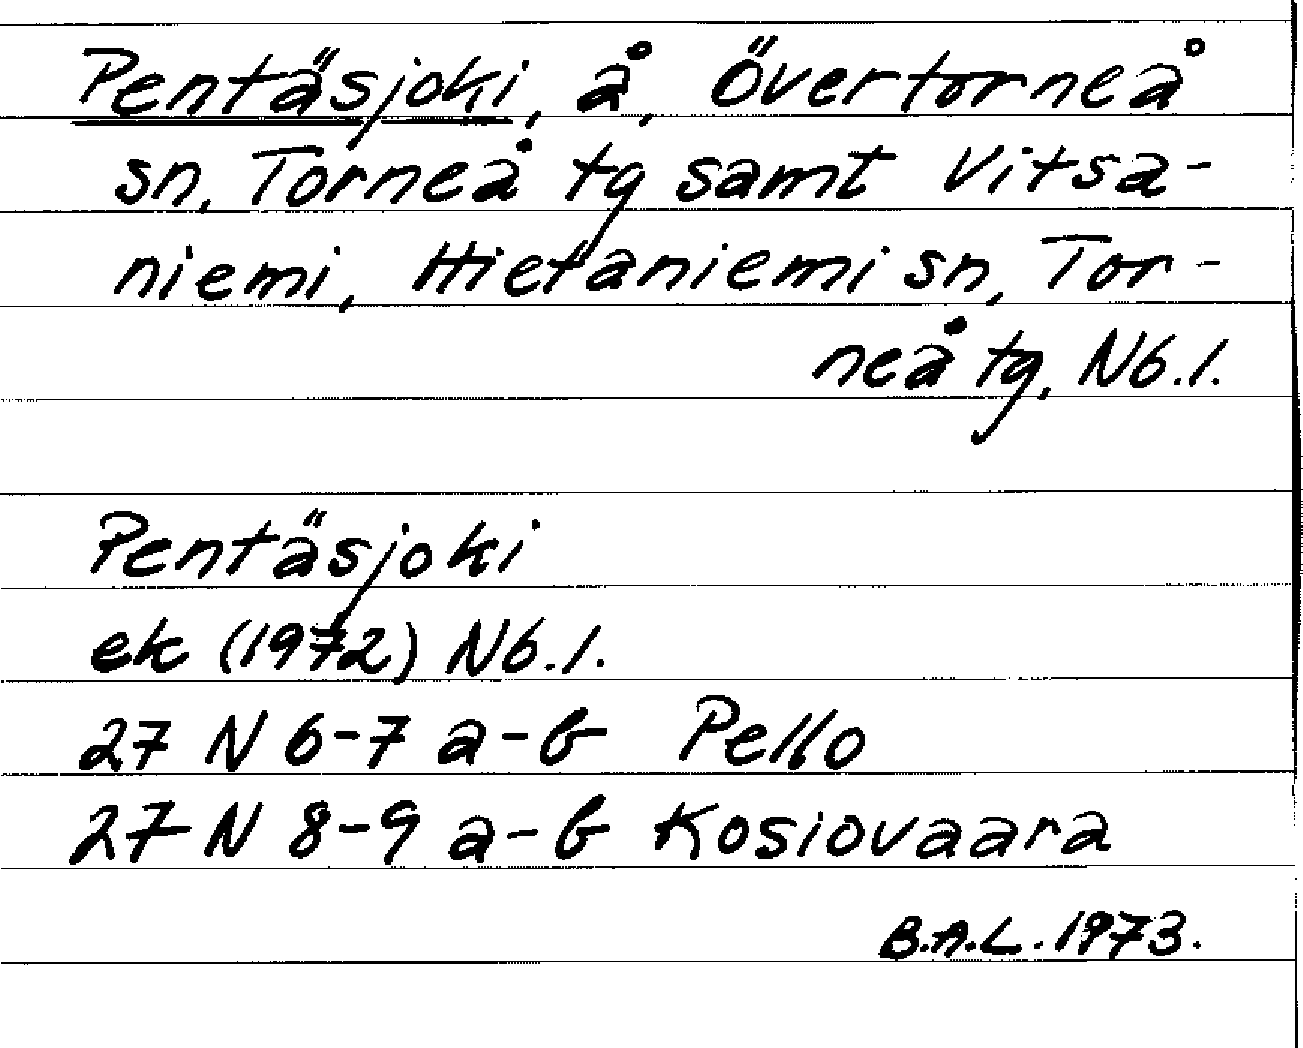 Pentäsjoki, å, Övertorneå
sn, Torneå tg samt Vitsa-
niemi, Hietaniemi sn, Tor-
neå tg, Nb.l.
Pentäsjoki
ek (1972) Nb.l.
27 N 6-7 a-b Pello
27 N 8-9 a-b Kosiovaara
B.A.L. 1973.